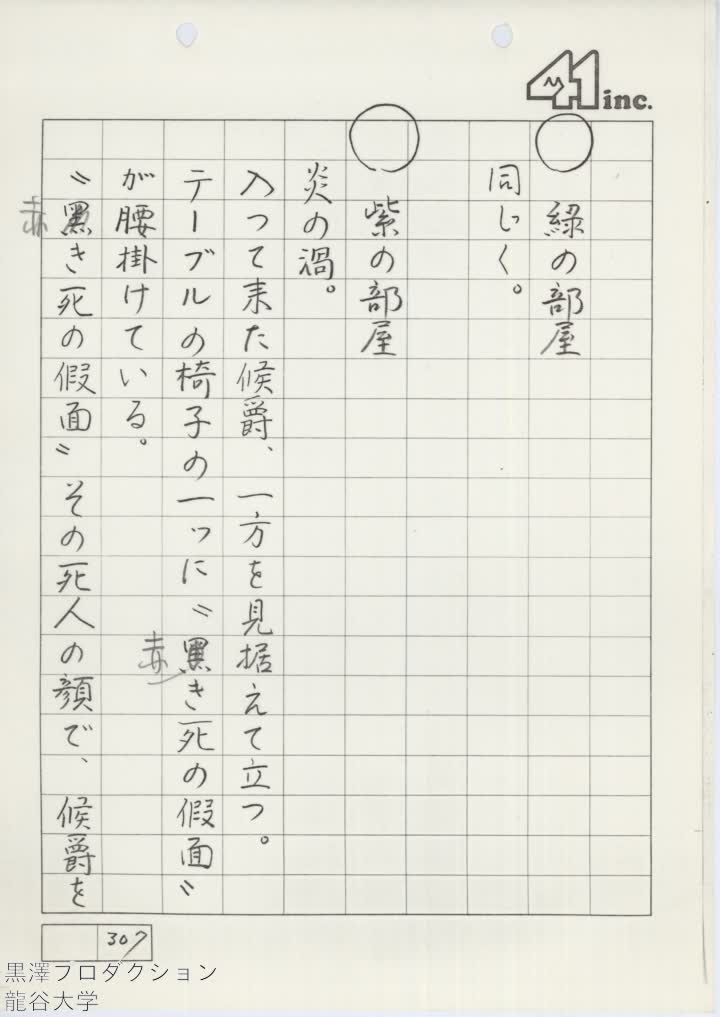 41 inc.
○ 緑の部屋
同じく。
○ 紫の部屋
炎の渦。
入って来た候爵、一方を見据えて立つ。
テーブルの椅子の一ツに〝黒き死の假面〟
赤
が腰掛けている。
〝黒き死の假面〟その死人の顔で、候爵を
赤
307
黒澤プロダクション
龍谷大学